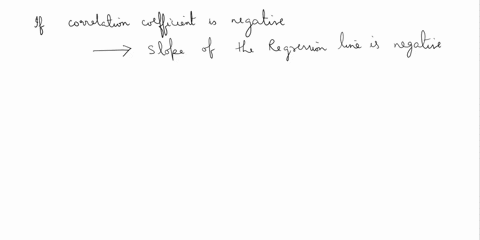 If correlation coefficient is negative
→ Slope of the Regression line is negative